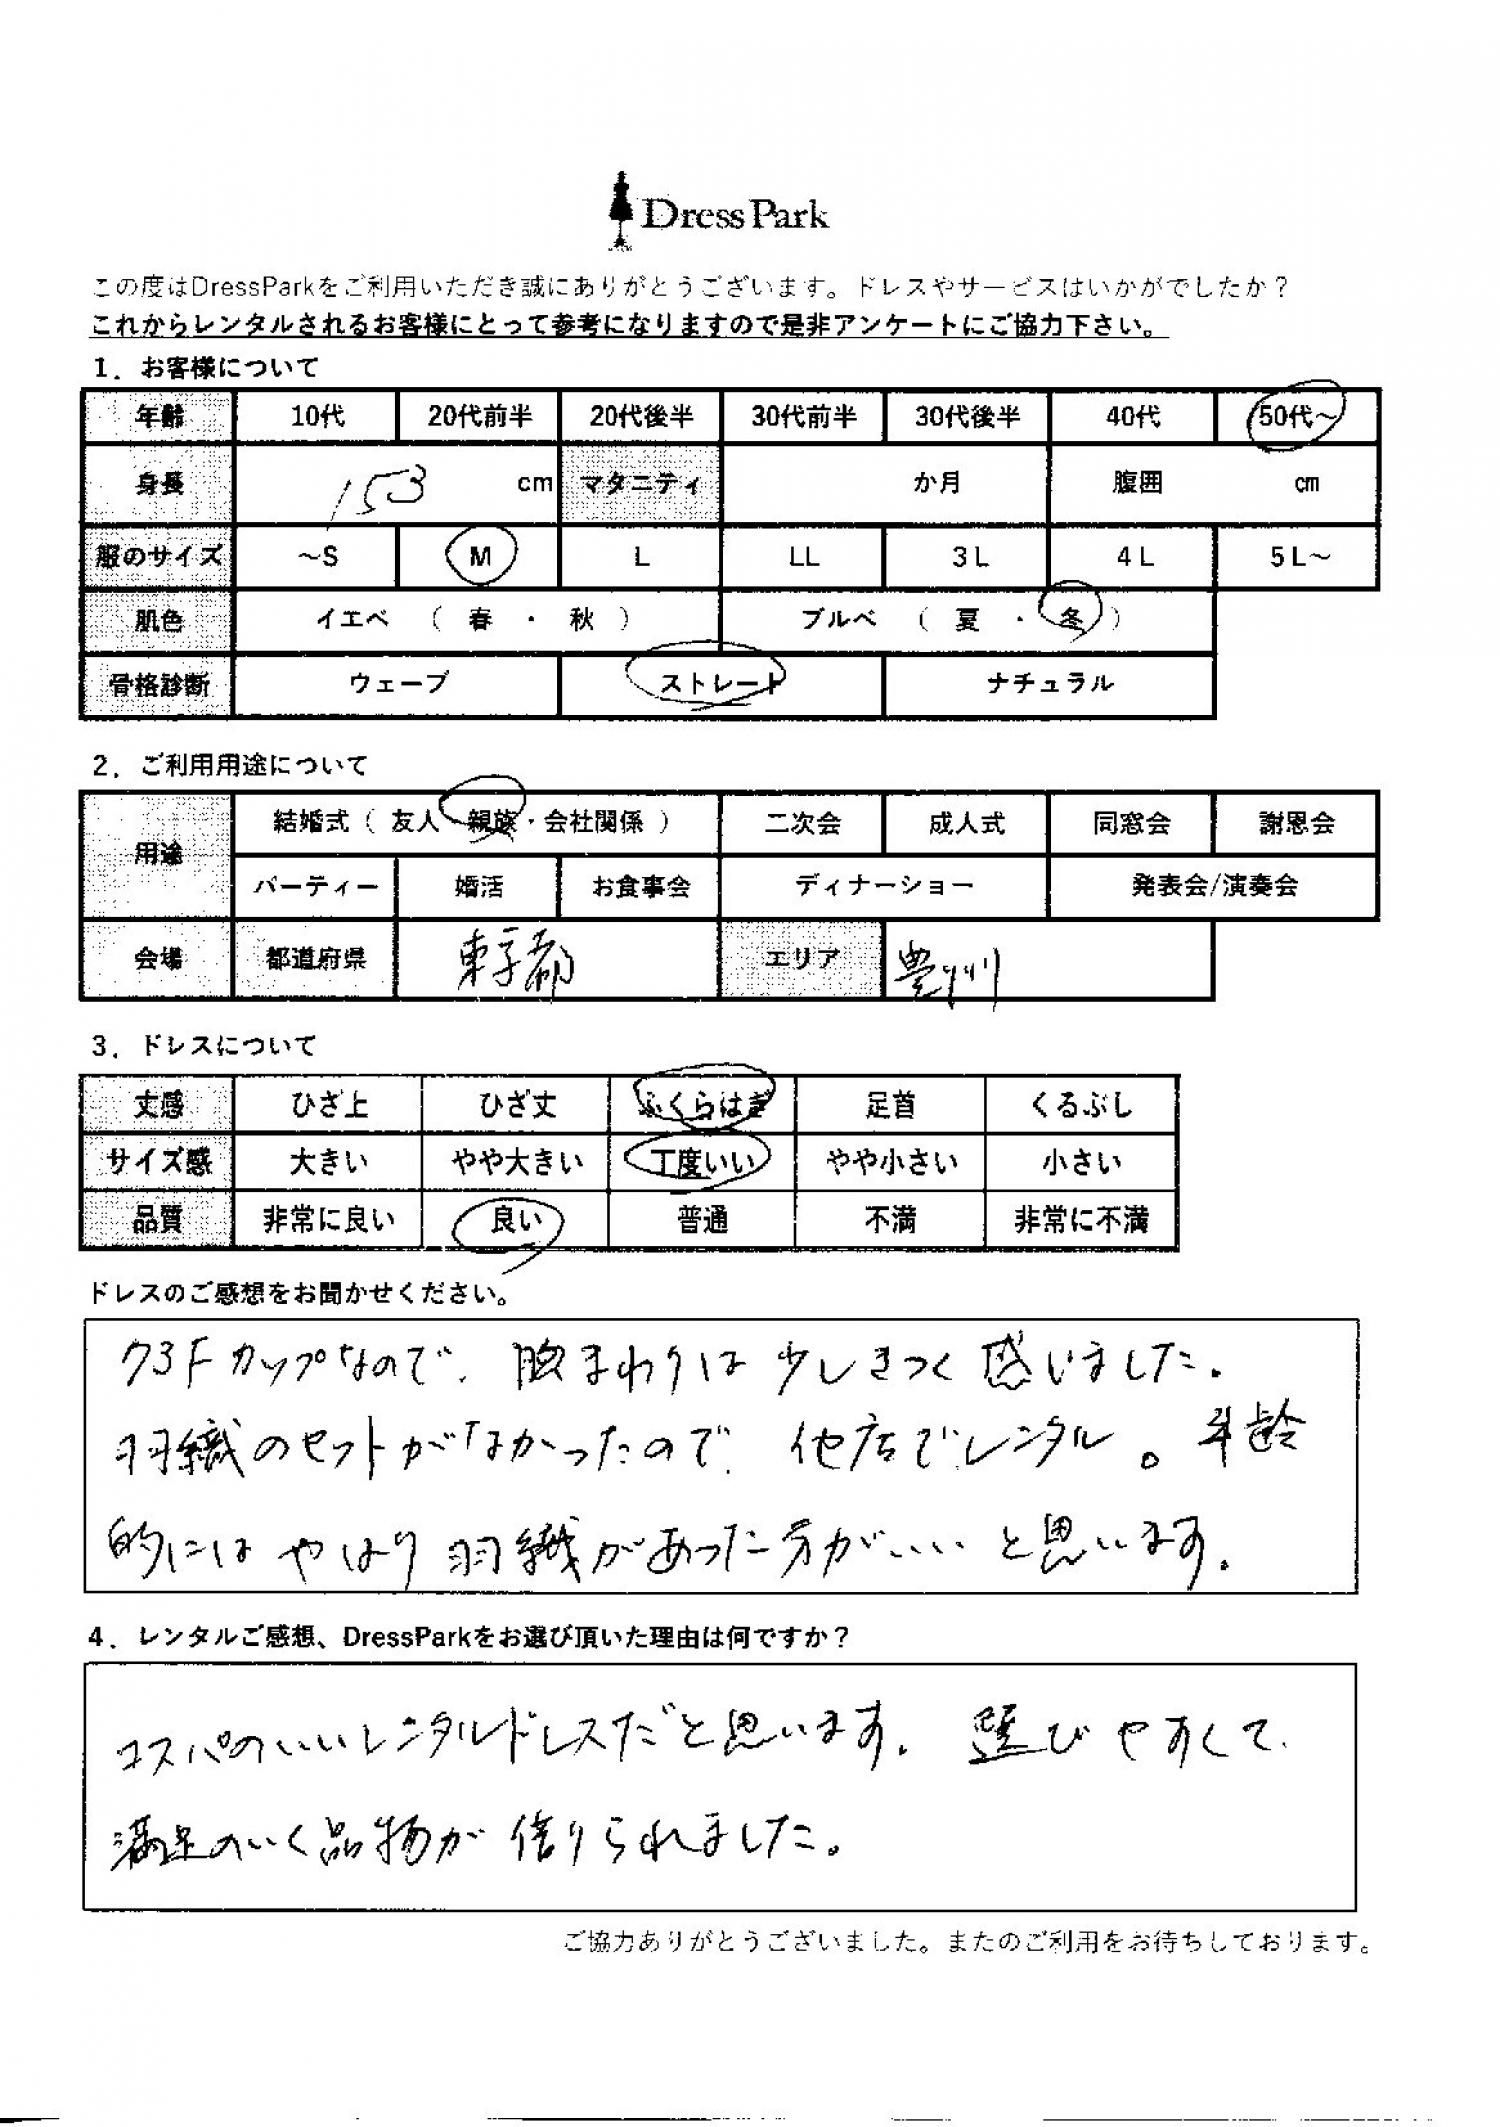 DressPark
この度はDressParkをご利用いただき誠にありがとうございます。ドレスやサービスはいかがでしたか？
これからレンタルされるお客様にとって参考になりますので是非アンケートにご協力下さい。
1．お客様について
年齢 10代 20代前半 20代後半 30代前半 30代後半 40代 50代～
身長 153 cm マタニティ か月 腹囲 cm
服のサイズ ～S M L LL 3L 4L 5L～
肌色 イエベ （ 春 ・ 秋 ） ブルベ （ 夏 ・ 冬 ）
骨格診断 ウェーブ ストレート ナチュラル
2．ご利用用途について
用途 結婚式（ 友人・親族・会社関係 ） 二次会 成人式 同窓会 謝恩会
パーティー 婚活 お食事会 ディナーショー 発表会/演奏会
会場 都道府県 東京都 エリア 豊洲
3．ドレスについて
丈感 ひざ上 ひざ丈 ふくらはぎ 足首 くるぶし
サイズ感 大きい やや大きい 丁度いい やや小さい 小さい
品質 非常に良い 良い 普通 不満 非常に不満
ドレスのご感想をお聞かせください。
73Fカップなので、胸まわりは少しきつく感いました。
羽織のセットがなかったので、他店でレンタル。年齢
的にはやはり羽織があった方がいいと思います。
4．レンタルご感想、DressParkをお選び頂いた理由は何ですか？
コスパのいいレンタルドレスだと思います。選びやすくて、
満足のいく品物が借りられました。
ご協力ありがとうございました。またのご利用をお待ちしております。